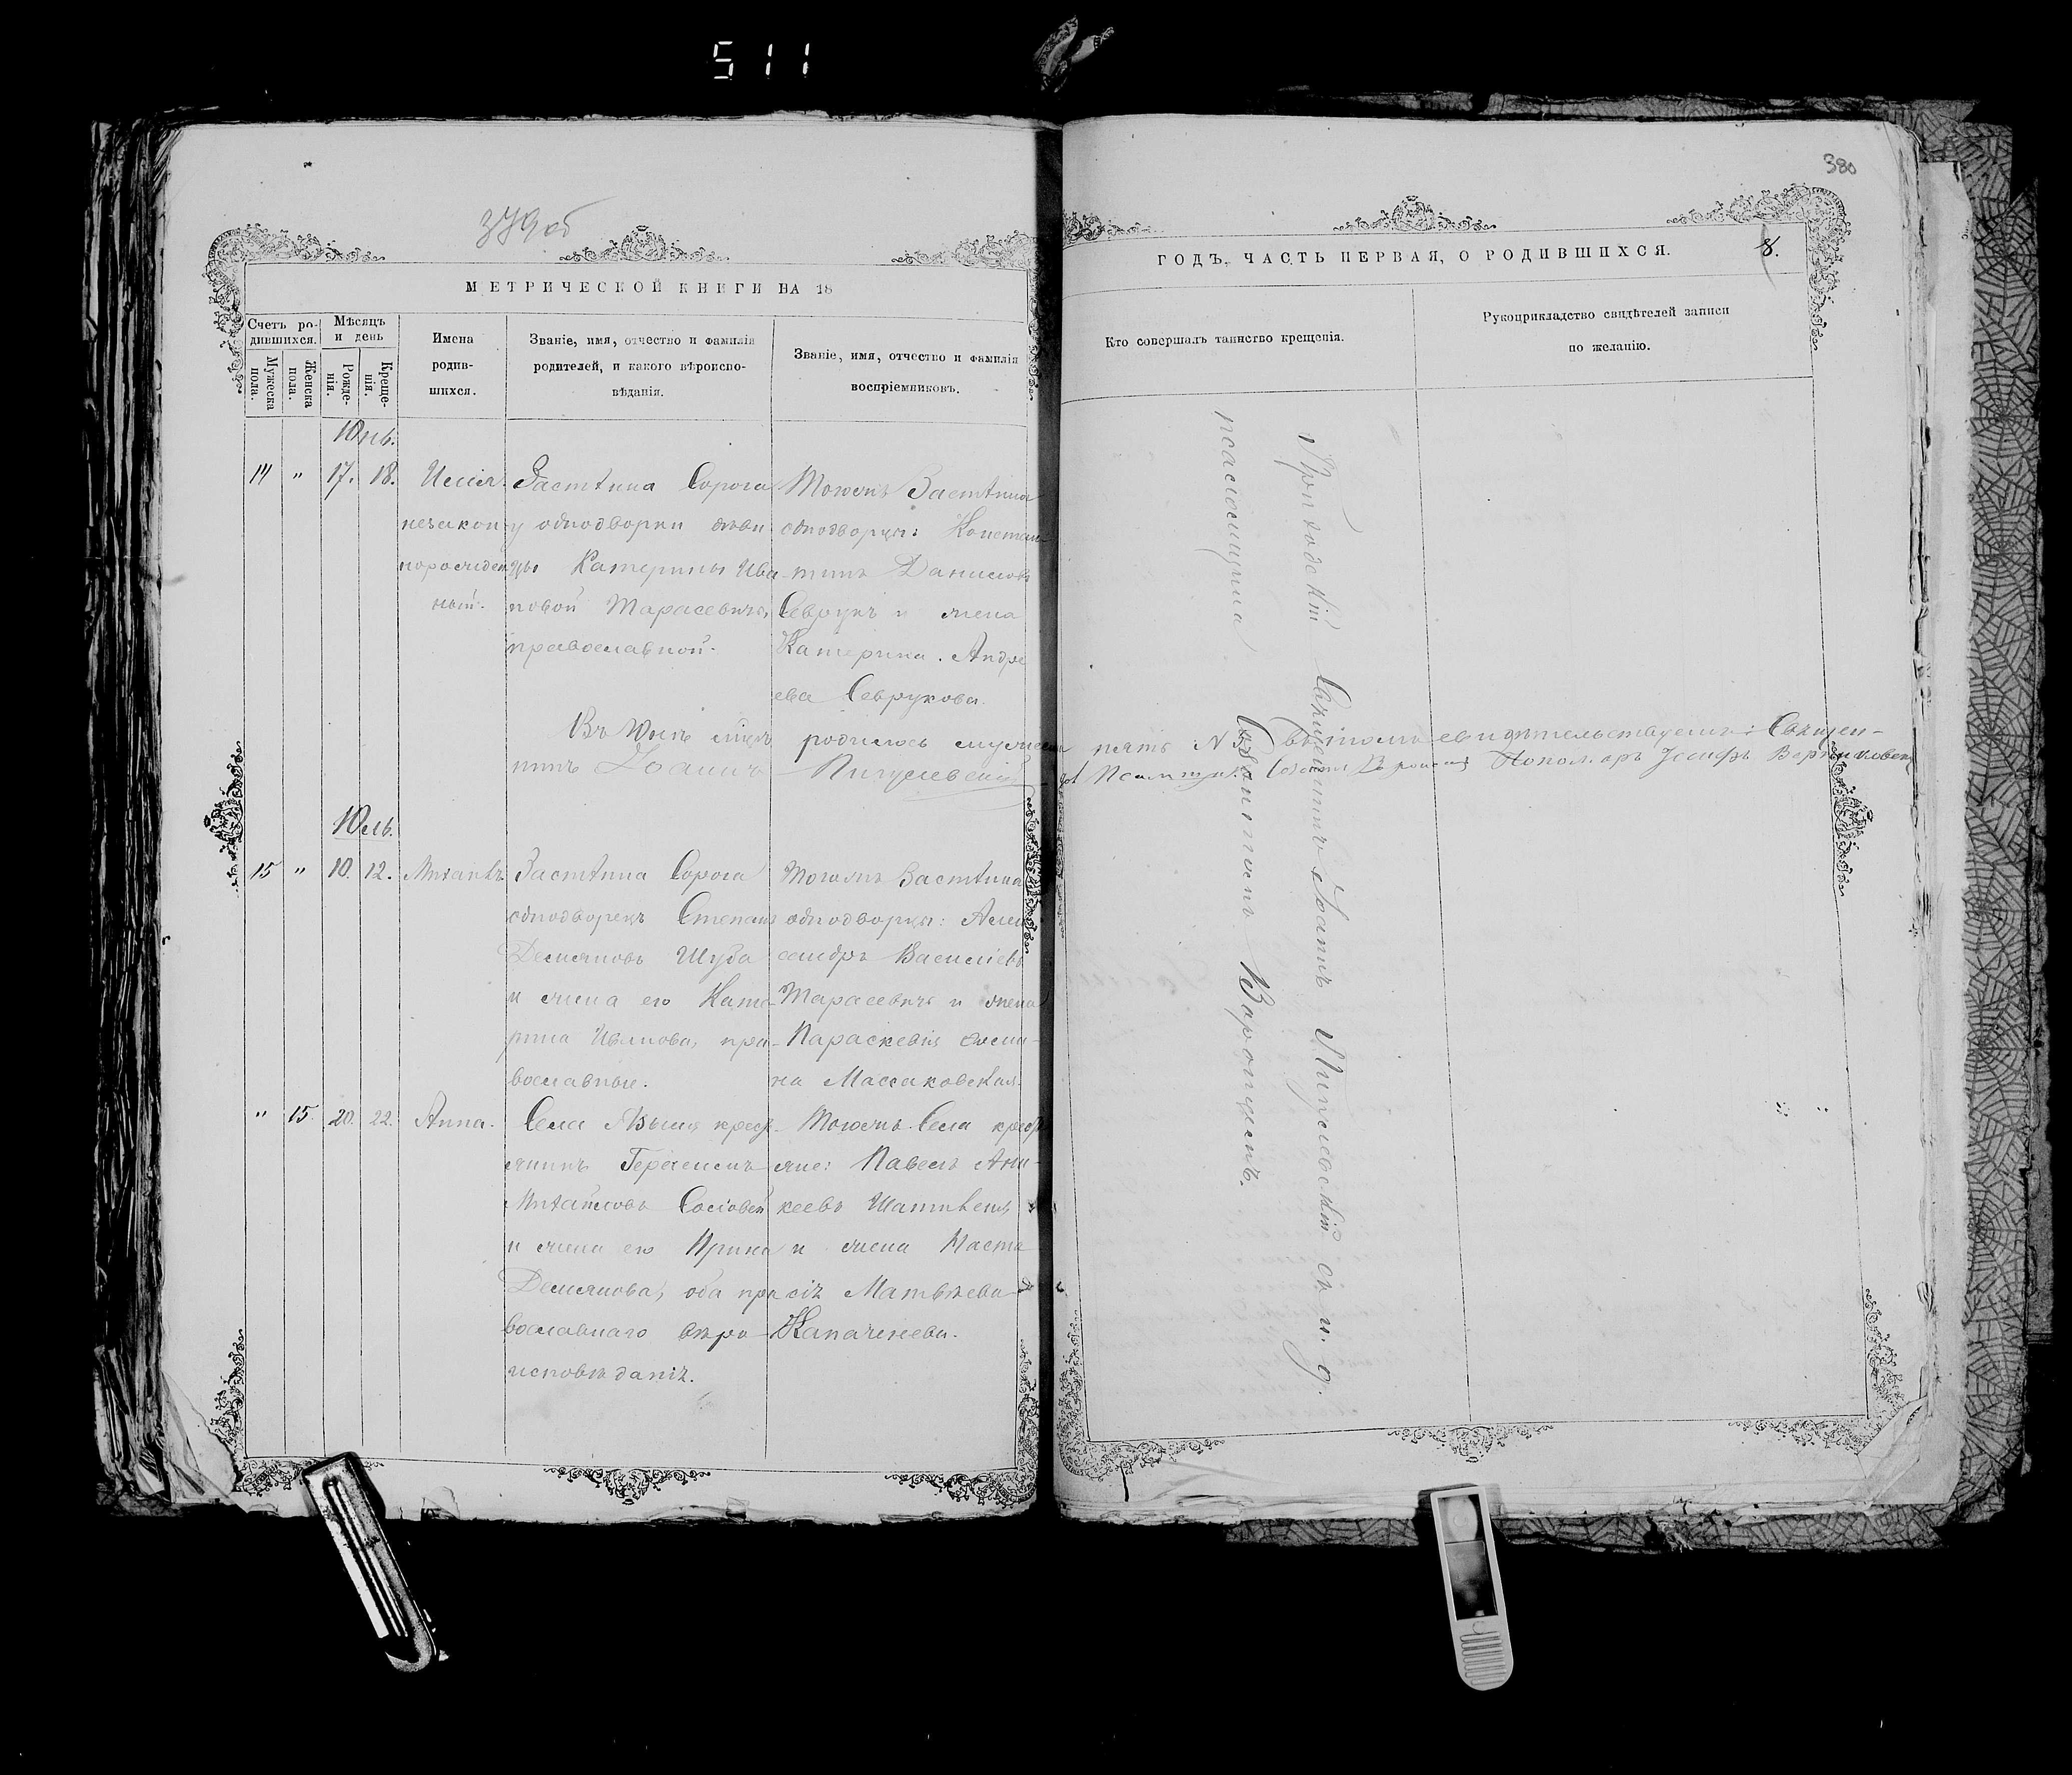 511
380
379об
МЕТРИЧЕСКОЙ КНИГИ НА 18
Счетъ ро-
дившихся.
Мужеска
пола.
Женска
пола.
Мѣсяцъ
и день
Рожде-
нія.
Креще-
нія.
Имена
родив-
шихся.
Званіе, имя, отчество и фамилія
родителей, и какого вѣроиспо-
вѣданія.
Званіе, имя, отчество и фамилія
воспріемниковъ.
Юнь.
14 " 17. 18.
незакон
норожден
ный.
Застѣнка Сорога
у однодворки дѣви
цы Катерины Ива
новой Тарасевичъ,
православной.
Тогожъ Застѣнка
однодворцы: Констан
тинъ Даниловъ
Севрукъ и жена
Катерина Андре
ева Севрукова.
Въ Юнѣ родилось
Іоаннъ Пигулевскій
Юль.
15 " 10. 12. Михаилъ.
Застѣнка Сорога
однодворецъ Степанъ
Демьяновъ Шуба
и жена его Кате
рина Иванова, пра-
вославные.
Тогожъ Застѣнка
однодворцы: Алек
сандръ Василіевъ
Тарасевичъ и жена
Параскевія
на Массаковская.
" 15. 20. 22. Анна.
Села кресть
янинъ Герасимъ
Михайловъ Соловей
и жена его Ирина
Демьянова, оба пра
вославнаго вѣро-
исповѣданія.
Тогожъ Села кресть
яне: Павелъ Ани-
кеевъ
и жена Наста
сія Матвѣева
ГОДЪ, ЧАСТЬ ПЕРВАЯ, О РОДИВШИХСЯ.
8.
Кто совершалъ таинство крещенія.
Рукоприкладство свидѣтелей записи
по желанію.
Приходскій Священникъ Іоаннъ Пигулевскій съ и. д.
псаломщика
пять № 5 въ томъ свидѣтельствуемъ: Священ-
Пономарь Іосифъ